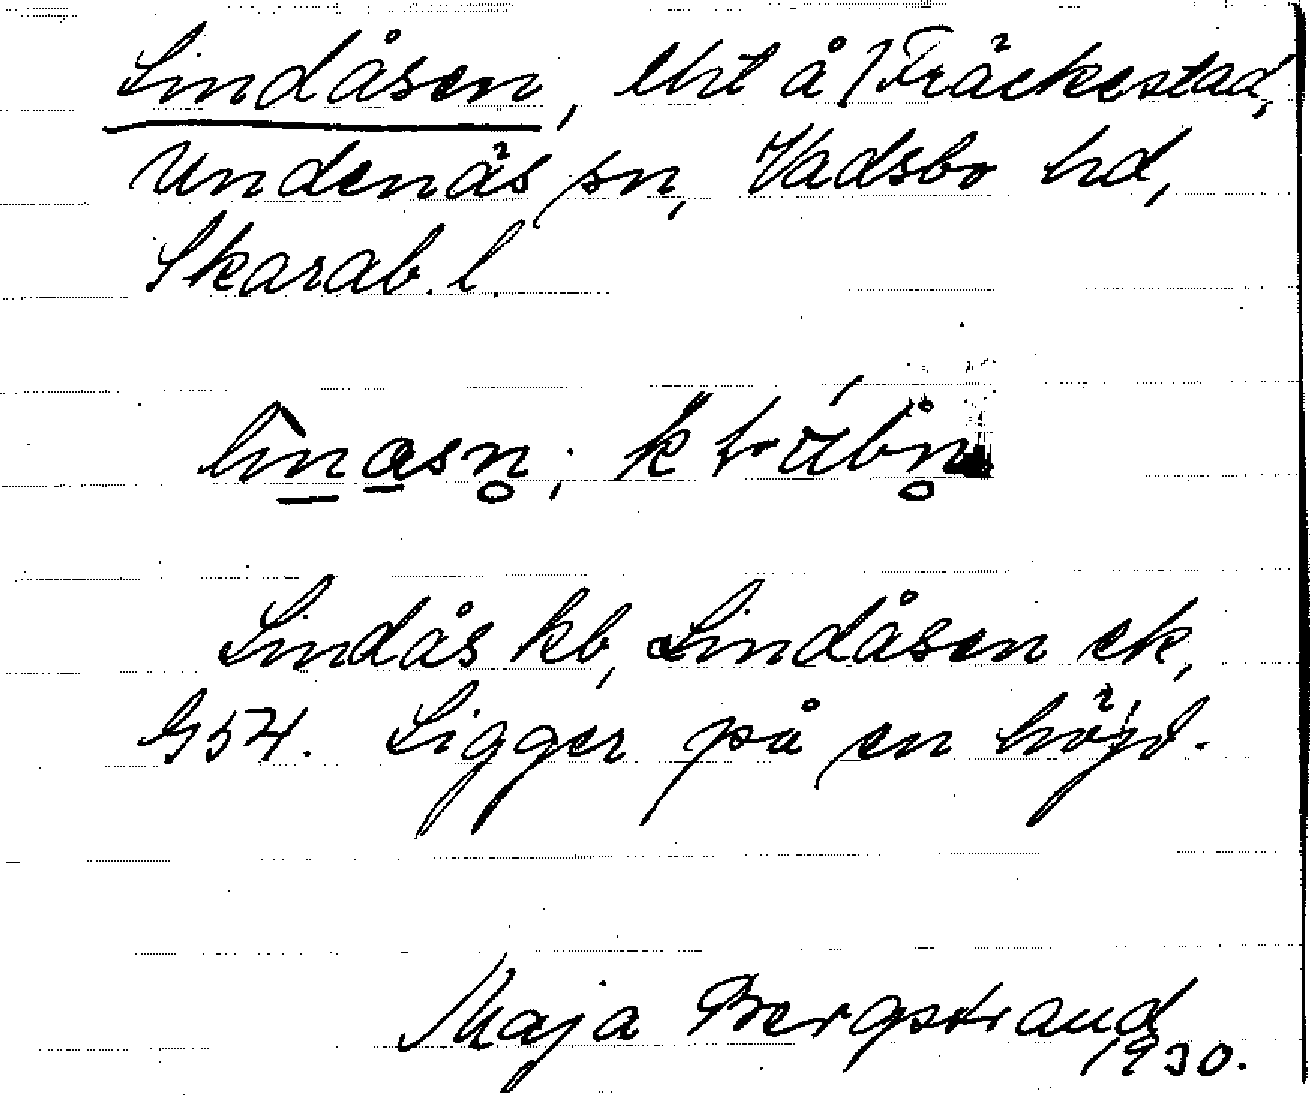 Lindåsen, lht å 1 Fräckestad,
Undenäs sn, Vadsbo hd,
Skarab. l.
Lindås kb, Lindåsen ek,
G54. Ligger på en höjd.
Maja Bergstrand
1930.